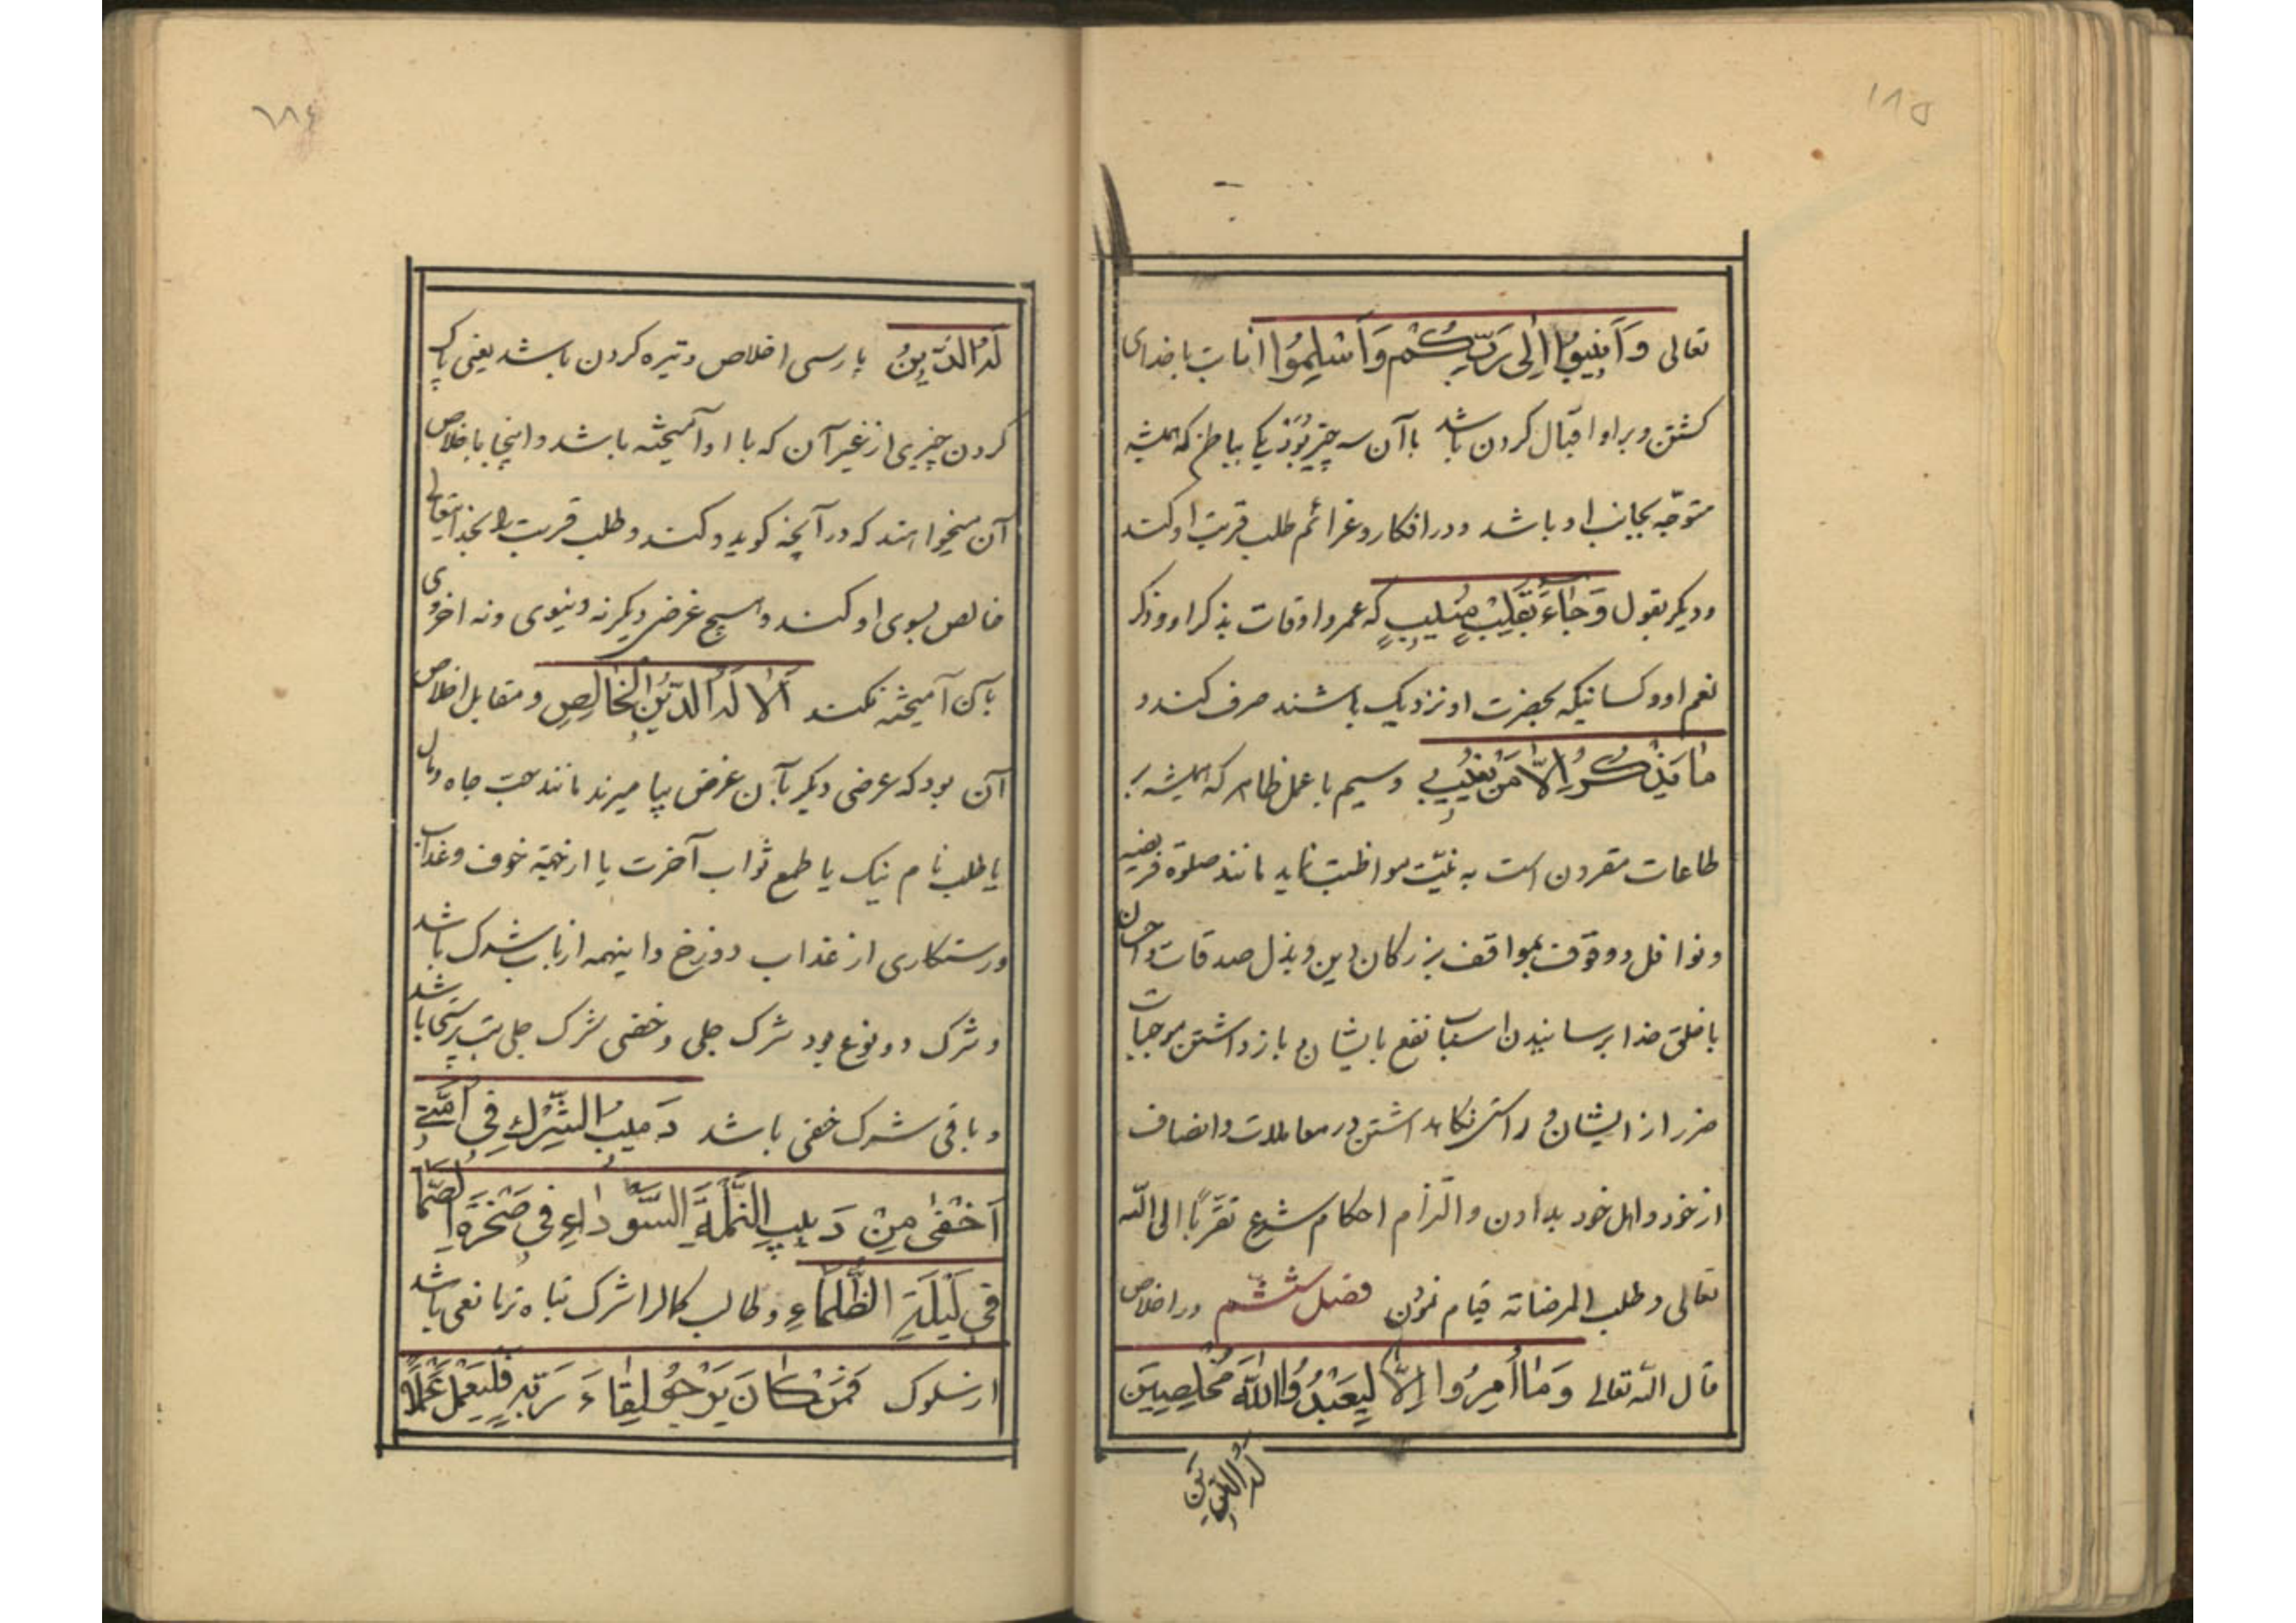 ۱۸۵
تعالی وَاَنیبُوا اِلی رَبِّکُم وَاَسْلِمُوا انابت با خدای
کشتن و براو اقبال کردن باشد باآن سه چیز بُوَد یکی بباطن که همیشه
متوجّه بجانب او باشد و در افکار و عزائم طلب قربت او کند
و دیکر بقول وَجٰاءَ بِقَلبٍ مُنیبٍ که عمر و اوقات بذکر او و ذکر
نعم او و کسانیکه بحضرت او نزدیک باشند صرف کند و
مٰا یَذَّکَّرُ اِلّا مَن یُنیبُ و سیم با عمل ظاهر که همیشه بر
طاعات مقرون است به نیّت مواظبت نماید مانند صلوة فریضه
و نوافل و وقوف بمواقف بزرکان دین و بذل صدقات و احسان
با خلق خدا برسانیدن اسباب نفع بایشان و بازداشتن موجبات
ضرر از ایشان و راستی نکاهداشتن در معاملات و انصاف
از خود و اهل خود بدادن و التزام احکام شرع تقرّباً الی اللّه
تعالی و طلب المرضاته قیام نمودن فصل ششم در اخلاص
قال اللّه تعالی وَمٰا اُمِرُوا اِلّا لِیَعْبُدُوا اللّٰهَ مُخلِصینَ
لَهُ الدّینَ
۱۸۶
لَهُ الدّینُ پارسی اخلاص ویژه کردن باشد یعنی پاک
کردن چیزی از غیر آن که با او آمیخته باشد و اینجا باخلاص
آن میخواهند که در آنچه کوید و کند و طلب قربت بخدایتعالی
خالص بسوی او کند و هیچ غرض دیکر نه دنیوی و نه اخروی
بآن آمیخته نکند اَلا لِلّٰهِ الدّینُ الخٰالِصِ و مقابل اخلاص
آن بود که غرضی دیکر بآن غرض بیامیزند مانند حبّ جاه و مال
یا طلب نام نیک یا طمع ثواب آخرت یا از جهة خوف و عذاب
و رستکاری از عذاب دوزخ و اینهمه از باب شرک باشد
و شرک دو نوع بود شرک جلی و خفی شرک جلی بت پرستی باشد
و باقی شرک خفی باشد دَبیبُ الشِّرْکِ فی اُمَّتی
اَخْفیٰ مِنْ دَبیبِ النَّملَةِ السَّوداءِ فی صَخْرَةِ الصَّمّا
فی لَیْلَةِ الظَّلماءِ و طالب کمال را شرک تباه‌ترین مانعی باشد
از سلوک فَمَنْ کٰانَ یَرْجُوا لِقٰاءَ رَبِّهِ فَلْیَعْمَلْ عَمَلاً